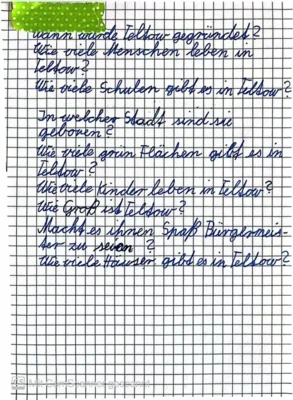 Wann wurde Teltow gegründet?
Wie viele Menschen leben in
Teltow?
Wie viele Schulen gibt es in Teltow?
In welcher Stadt sind sie
geboren?
Wie viele grün Flächen gibt es in
Teltow?
Wie viele Kinder leben in Teltow?
Wie Groß ist Teltow?
Macht es ihnen Spaß Bürgermeis-
ter zu seien ?
Wie viele Häuser gibt es in Teltow?